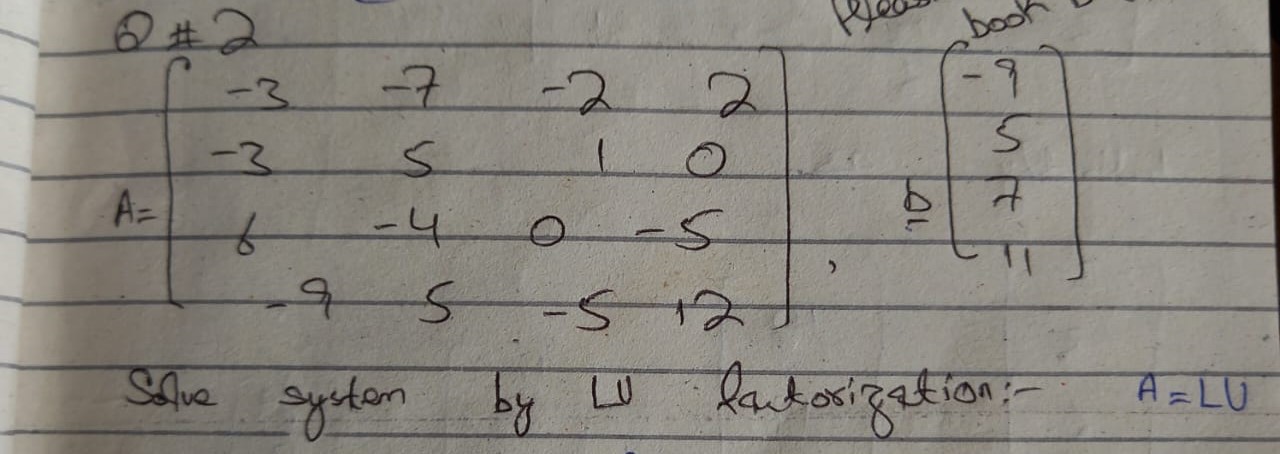 Q # 2
book
A = [ -3 -7 -2 2
-3 5 1 0
6 -4 0 -5
-9 5 -5 12 ] ,
b [ -9
5
7
11 ]
Solve system by LU factorization:- A = LU